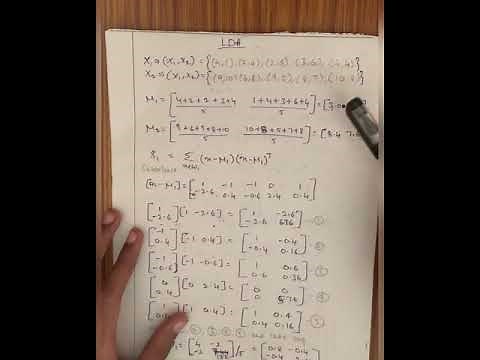 LDA
X₁ ⇒ (x₁, x₂) = {(4,1), (2,4), (2,3), (3,6), (4,4)}
X₂ ⇒ (x₁, x₂) = {(9,10), (6,8), (9,5), (8,7), (10,8)}
M₁ = [4+2+2+3+4 / 5   1+4+3+6+4 / 5] = [3.0
M₂ = [9+6+9+8+10 / 5   10+8+5+7+8 / 5] = [8.4 7.6]
S₁ = Σ (x-M₁)(x-M₁)ᵀ
[x-M₁] = [1 -1 -1 0 1
-2.6 0.4 -0.6 2.4 0.4]
[1
-2.6] [1 -2.6] = [1 -2.6
-2.6 6.76] - ①
[-1
0.4] [-1 0.4] = [1 -0.4
-0.4 0.16] - ②
[-1
-0.6] [-1 -0.6] = [1 0.6
0.6 0.36] - ③
[0
2.4] [0 2.4] = [0 0
0 5.76] - ④
[1
0.4] [1 0.4] = [1 0.4
0.4 0.16] - ⑤
= [4 -2
-2 ] /5 = [0.8 -0.4